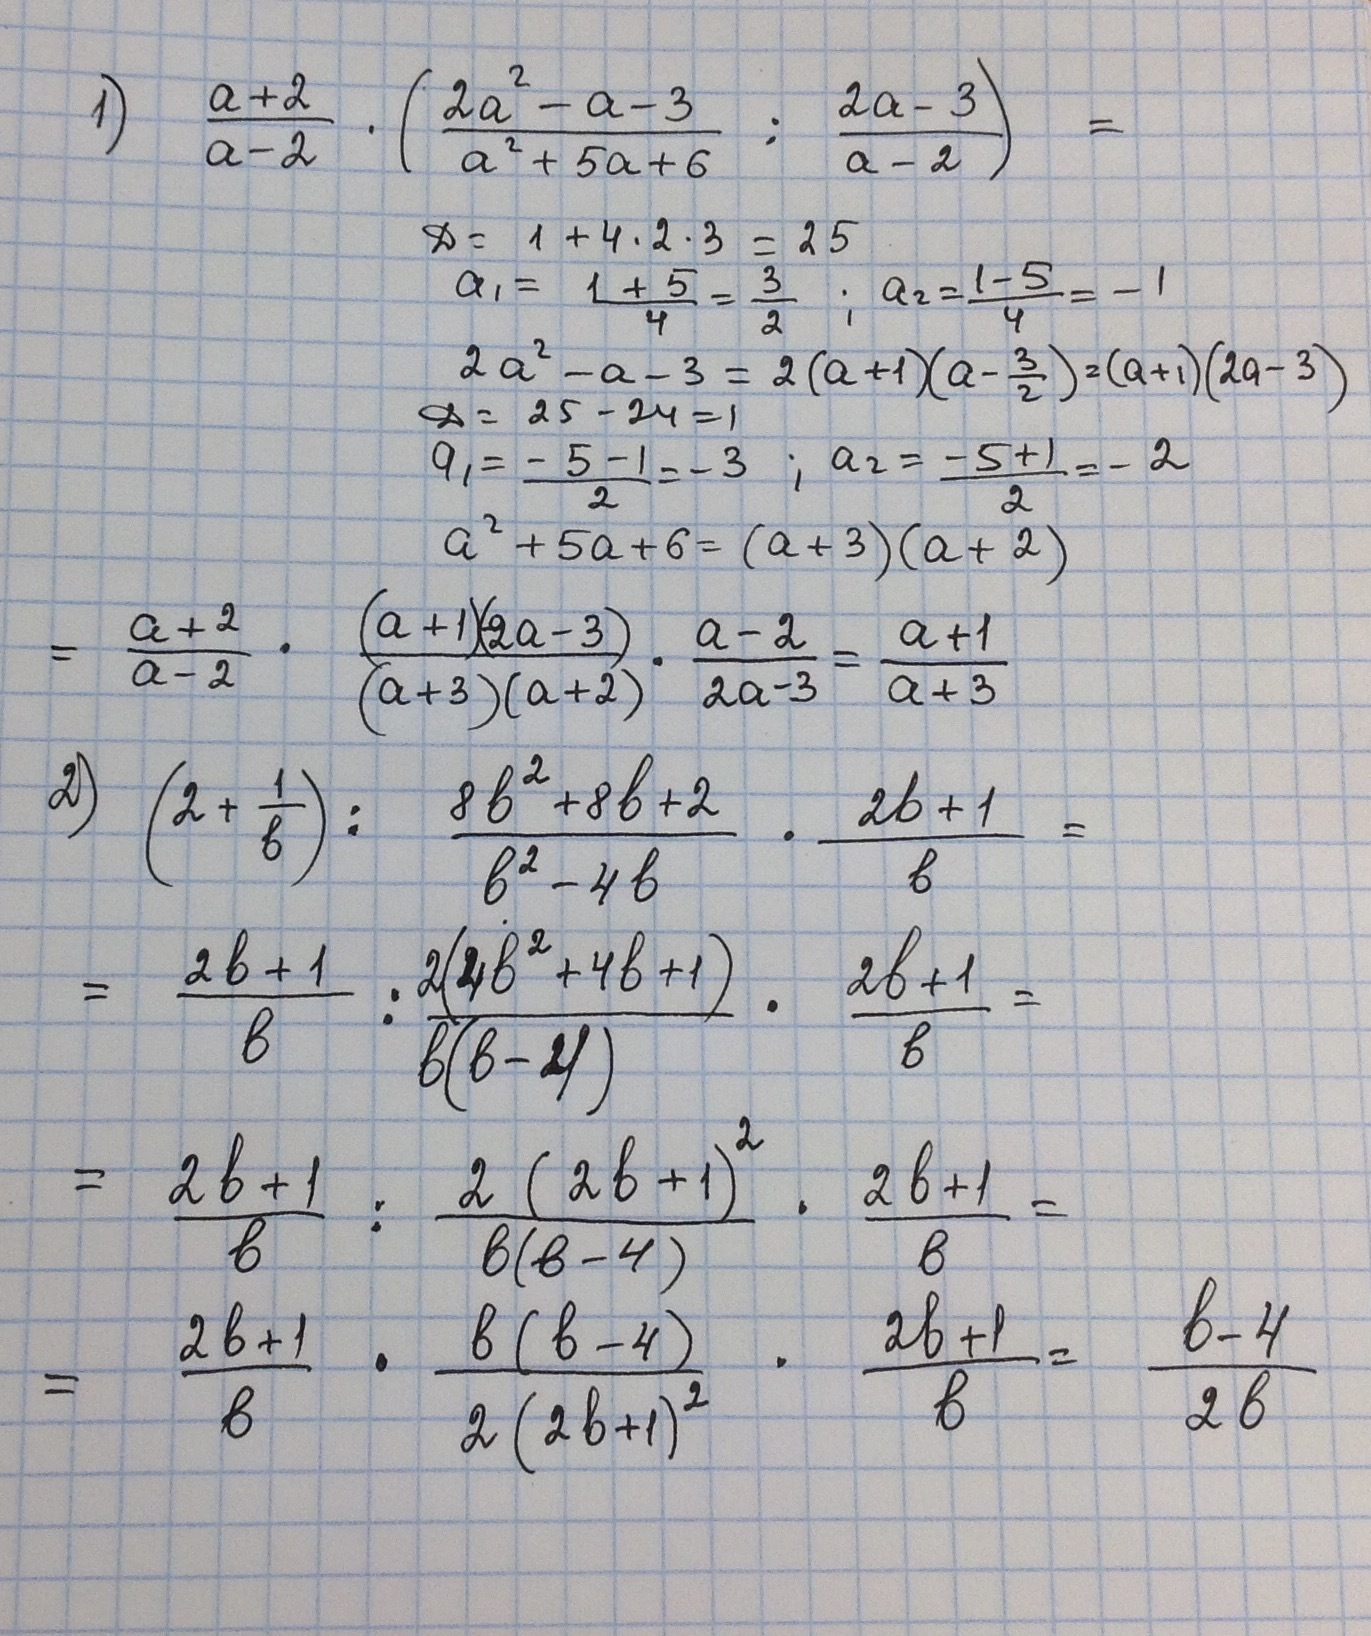 1) (a+2)/(a-2) · ( (2a² - a - 3)/(a² + 5a + 6) : (2a - 3)/(a - 2) ) =
D = 1 + 4·2·3 = 25
a₁ = (1+5)/4 = 3/2 ; a₂ = (1-5)/4 = -1
2a² - a - 3 = 2(a+1)(a - 3/2) = (a+1)(2a-3)
D = 25 - 24 = 1
a₁ = (-5-1)/2 = -3 ; a₂ = (-5+1)/2 = -2
a² + 5a + 6 = (a+3)(a+2)
= (a+2)/(a-2) · (a+1)(2a-3)/(a+3)(a+2) · (a-2)/(2a-3) = (a+1)/(a+3)
2) (2 + 1/b) : (8b² + 8b + 2)/(b² - 4b) · (2b+1)/b =
= (2b+1)/b : 2(4b² + 4b + 1)/b(b-4) · (2b+1)/b =
= (2b+1)/b : 2(2b+1)²/b(b-4) · (2b+1)/b =
= (2b+1)/b · b(b-4)/2(2b+1)² · (2b+1)/b = (b-4)/2b